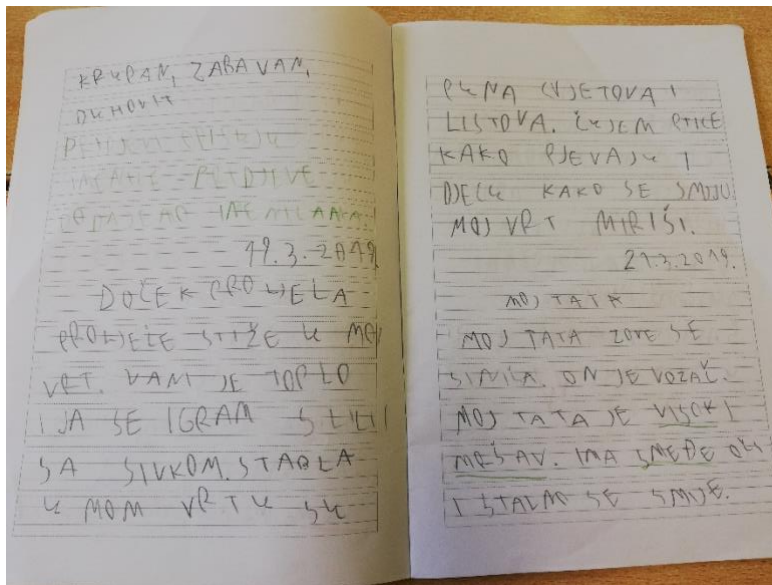 KRUPAN, ZABAVAN,
DUHOVIT
19.3.2019.
DOČEK PROLJEĆA
PROLJEĆE STIŽE U MOJ
VRT. VANI JE TOPLO
I JA SE IGRAM S LILI
SA SIVKOM. STABLA
U MOM VRTU SU
PUNA CVJETOVA I
LISTOVA. ČUJEM PTICE
KAKO PJEVAJU I
DJECU KAKO SE SMIJU
MOJ VRT MIRIŠI.
21.3.2019.
MOJ TATA
MOJ TATA ZOVE SE
SINIŠA. ON JE VOZAČ.
MOJ TATA JE VISOK I
MRŠAV. IMA SMEĐE OČI
I STALNO SE SMIJE.